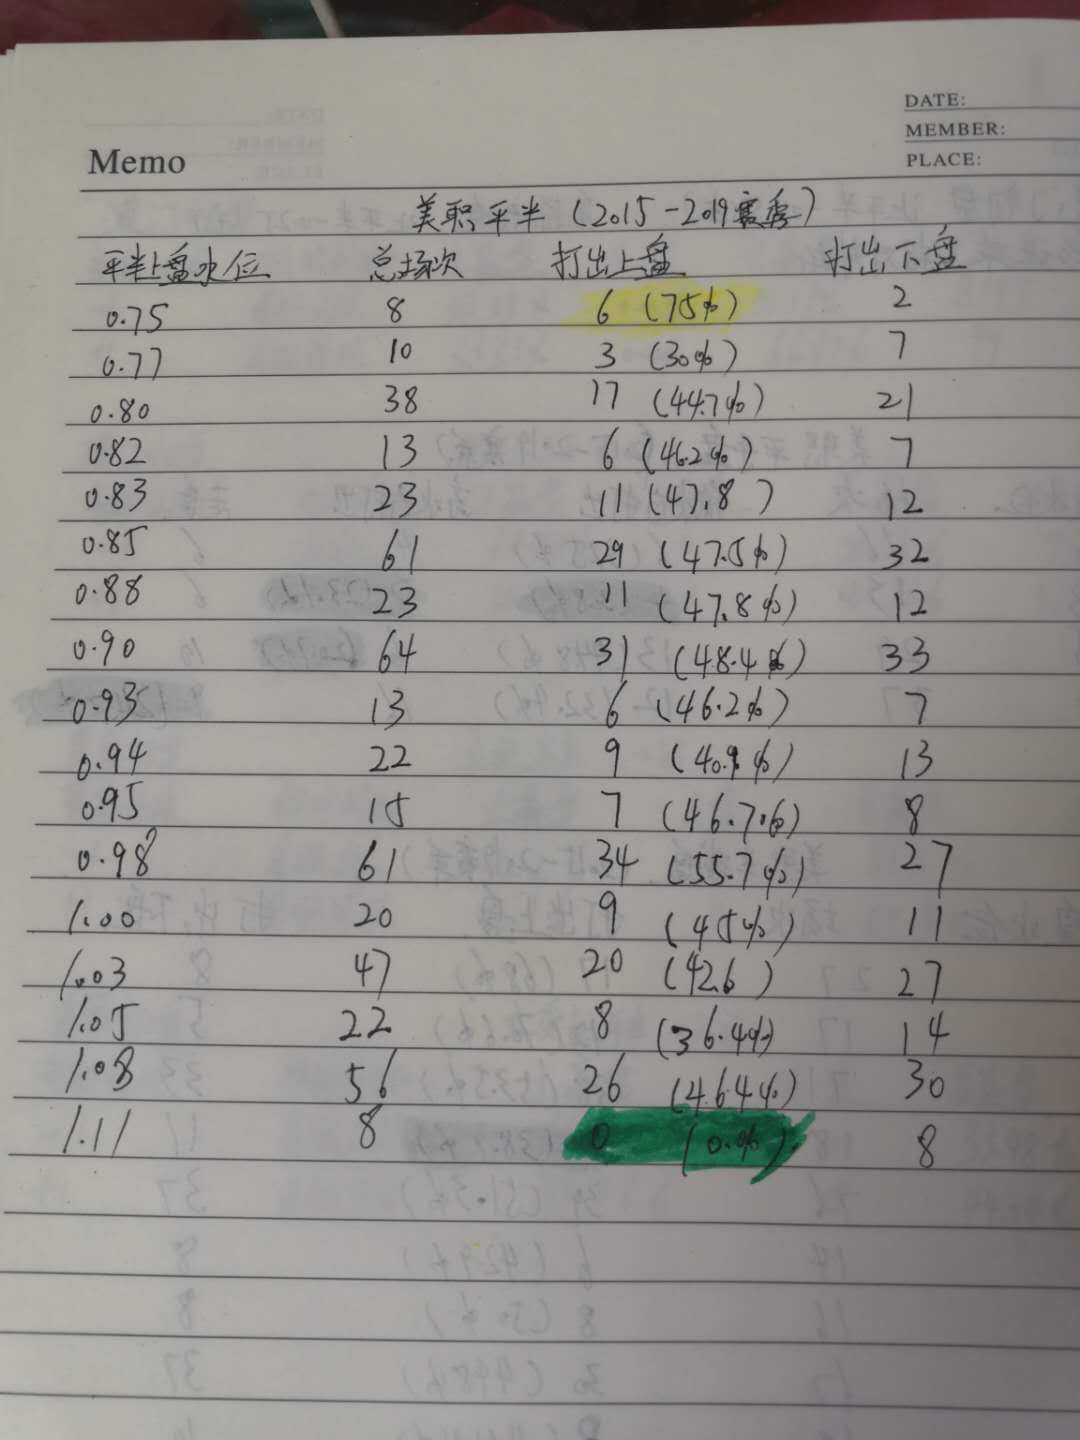 DATE:
MEMBER:
PLACE:
Memo
美职平半(2015-2019赛季)
平半上盘水位 总场次 打出上盘 打出下盘
0.75 8 6 (75%) 2
0.77 10 3 (30%) 7
0.80 38 17 (44.7%) 21
0.82 13 6 (46.2%) 7
0.83 23 11 (47.8 ) 12
0.85 61 29 (47.5%) 32
0.88 23 11 (47.8%) 12
0.90 64 31 (48.4%) 33
0.93 13 6 (46.2%) 7
0.94 22 9 (40.9%) 13
0.95 15 7 (46.7%) 8
0.98 61 34 (55.7%) 27
1.00 20 9 (45%) 11
1.03 47 20 (42.6 ) 27
1.05 22 8 (36.4%) 14
1.08 56 26 (46.4%) 30
1.11 8 0 (0.%) 8